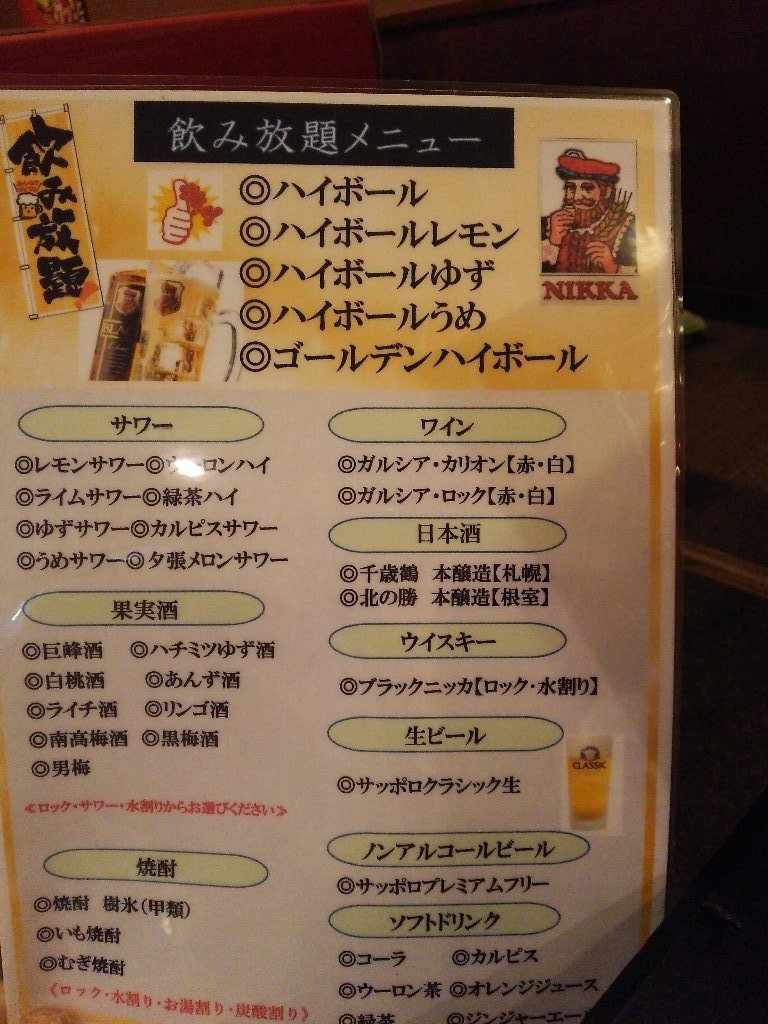 飲み放題メニュー
飲み放題
◎ハイボール
◎ハイボールレモン
◎ハイボールゆず
◎ハイボールうめ
◎ゴールデンハイボール
NIKKA
サワー
◎レモンサワー◎ウーロンハイ
◎ライムサワー◎緑茶ハイ
◎ゆずサワー◎カルピスサワー
◎うめサワー◎夕張メロンサワー
果実酒
◎巨峰酒 ◎ハチミツゆず酒
◎白桃酒 ◎あんず酒
◎ライチ酒 ◎リンゴ酒
◎南高梅酒 ◎黒梅酒
◎男梅
≪ロック・サワー・水割りからお選びください≫
焼酎
◎焼酎 樹氷(甲類)
◎いも焼酎
◎むぎ焼酎
《ロック・水割り・お湯割り・炭酸割り》
ワイン
◎ガルシア・カリオン【赤・白】
◎ガルシア・ロック【赤・白】
日本酒
◎千歳鶴 本醸造【札幌】
◎北の勝 本醸造【根室】
ウイスキー
◎ブラックニッカ【ロック・水割り】
生ビール
◎サッポロクラシック生
CLASSIC
ノンアルコールビール
◎サッポロプレミアムフリー
ソフトドリンク
◎コーラ ◎カルピス
◎ウーロン茶 ◎オレンジジュース
◎緑茶 ◎ジンジャーエール